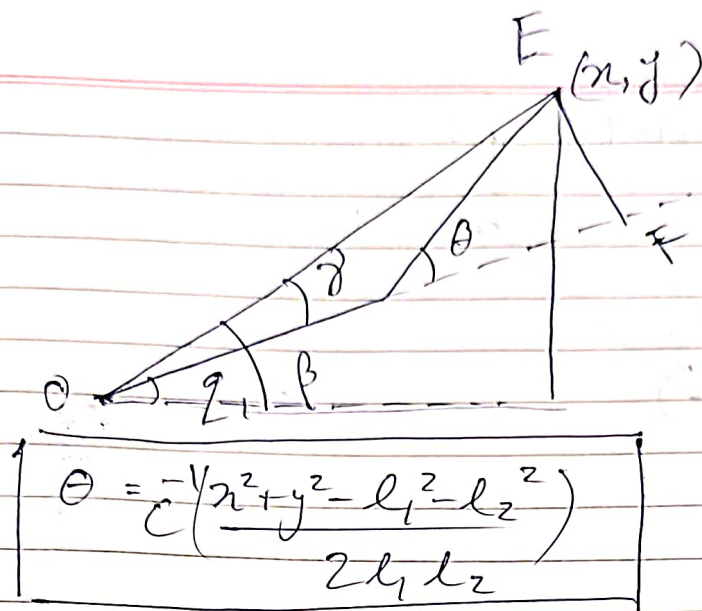 E
(x, y)
θ
γ
F
β
O
q₁
θ = C⁻¹(x² + y² - l₁² - l₂² / 2l₁l₂)